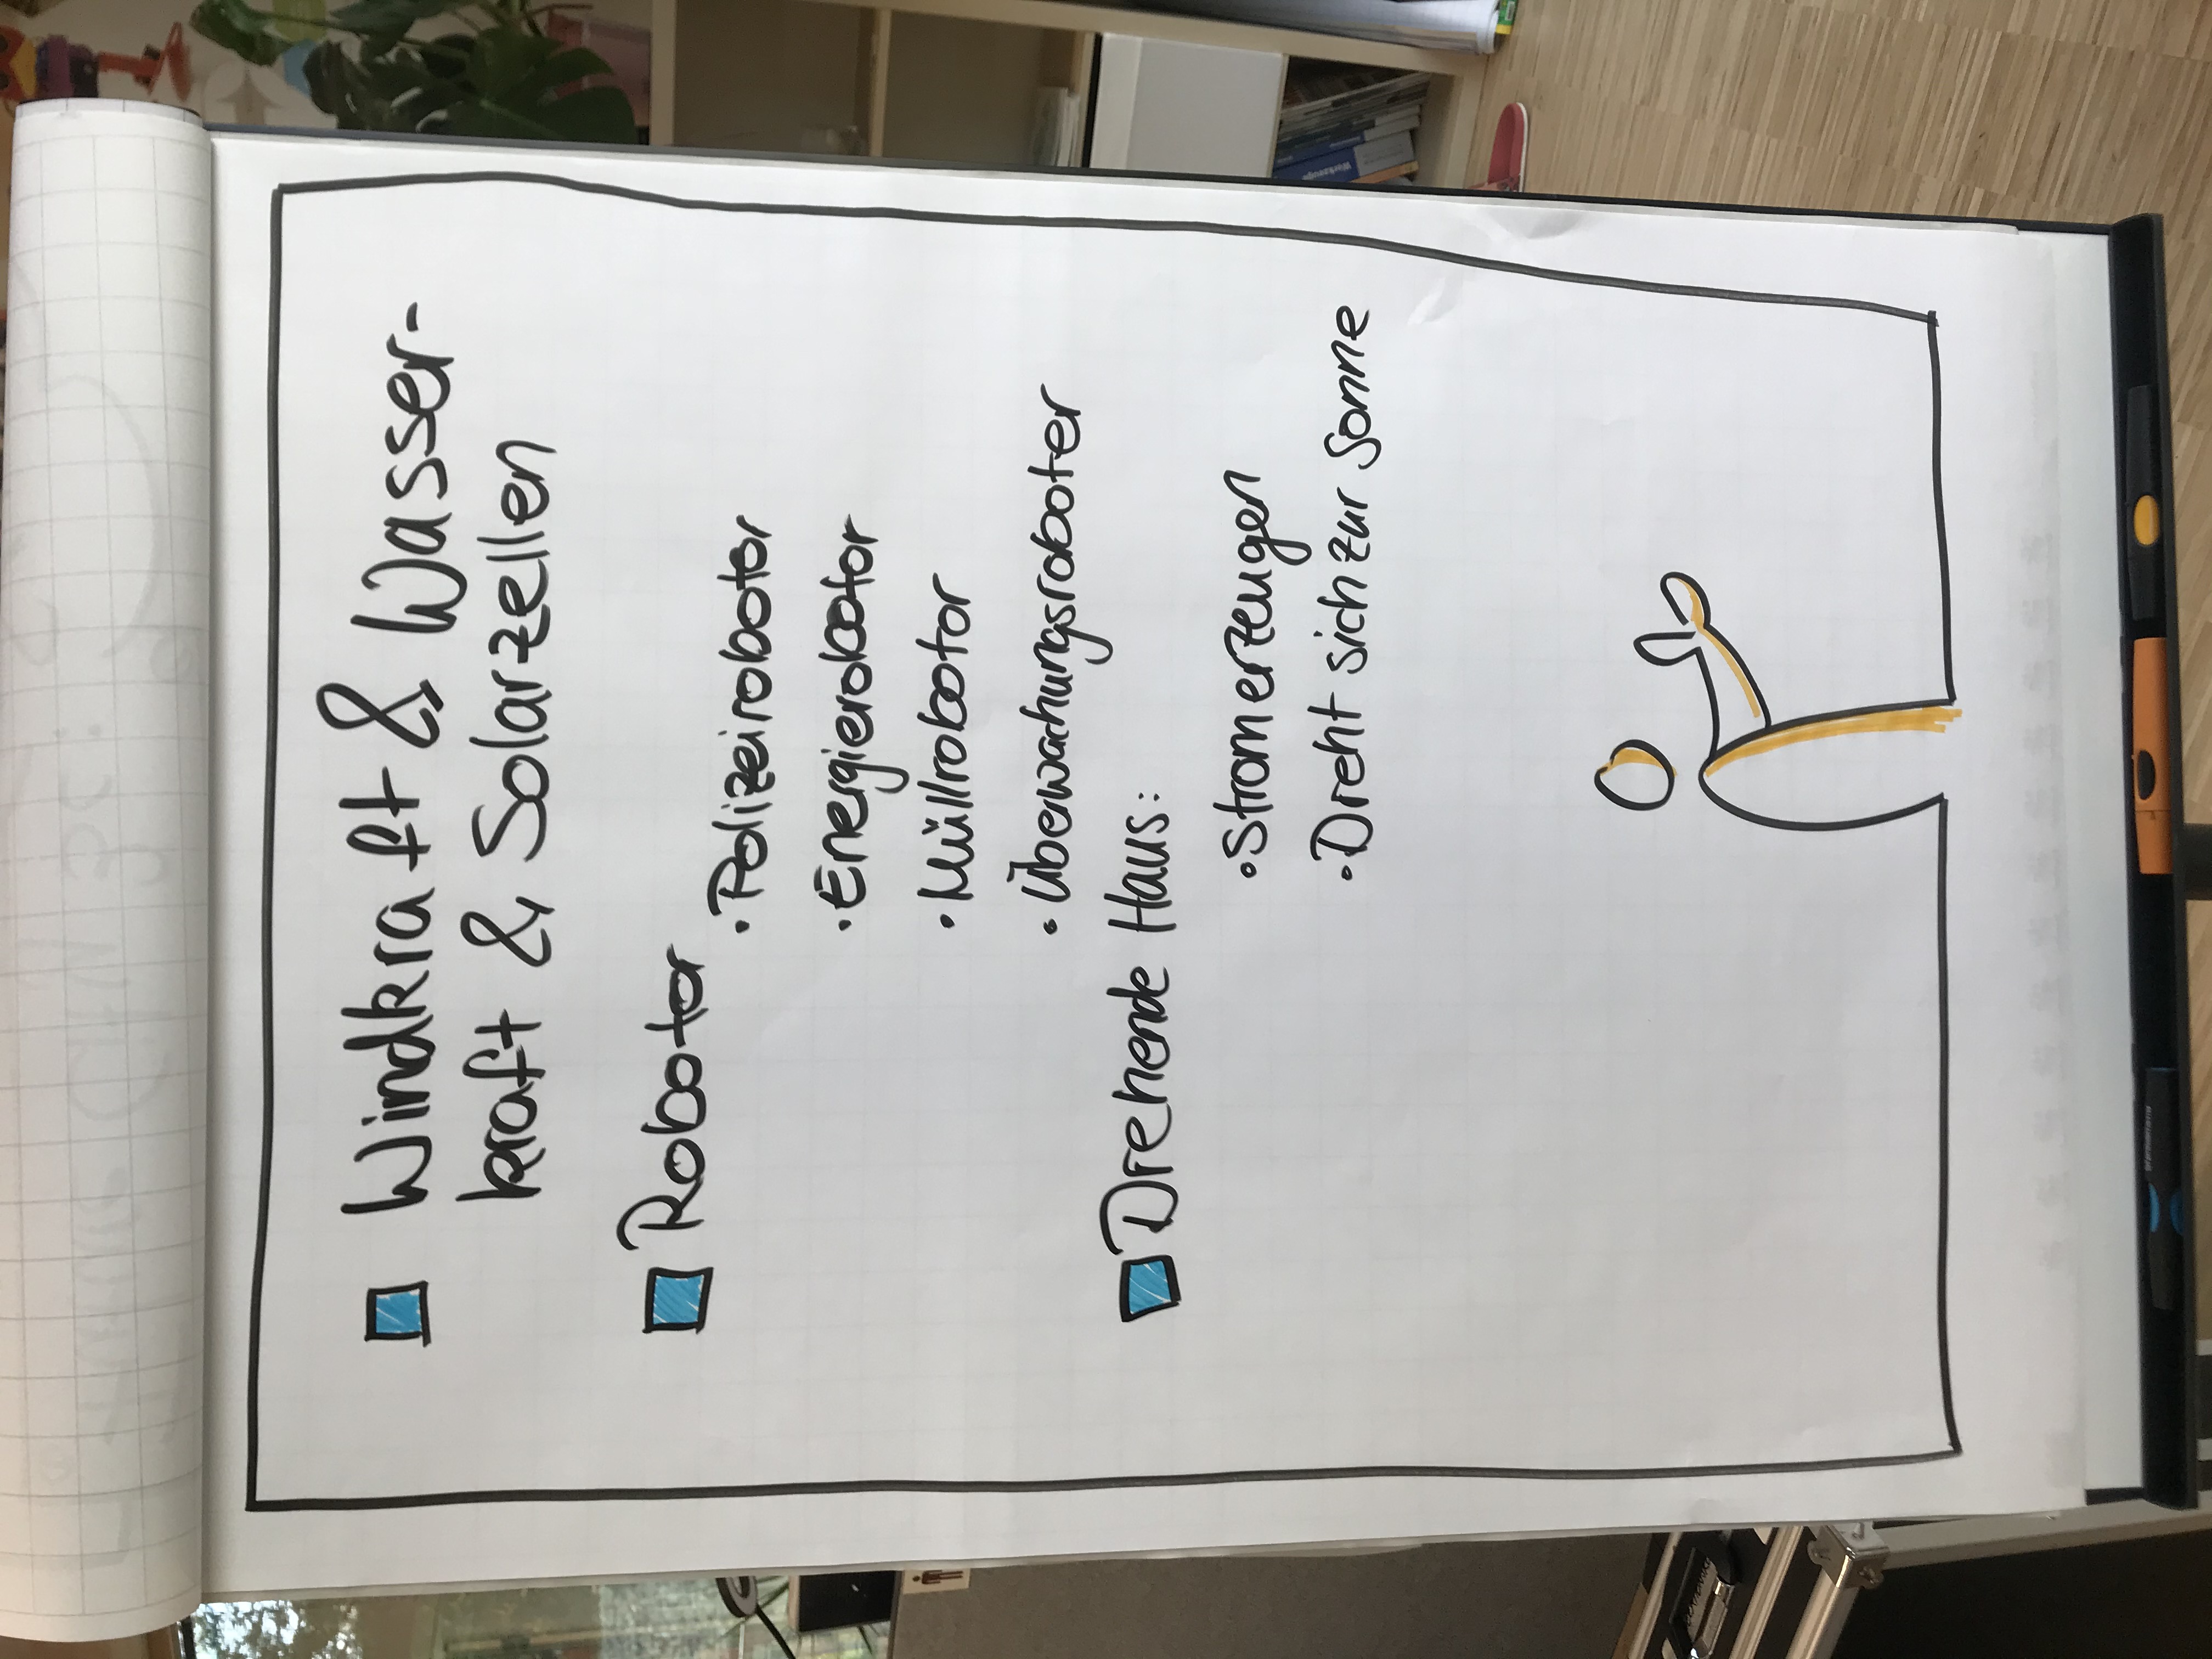 Windkraft & Wasser-
kraft & Solarzellen
Robotor
• Polizeirobotor
• Energierobotor
• Müllrobotor
• Überwachungsroboter
Drehende Haus:
• Strom erzeugen
• Dreht sich zur Sonne